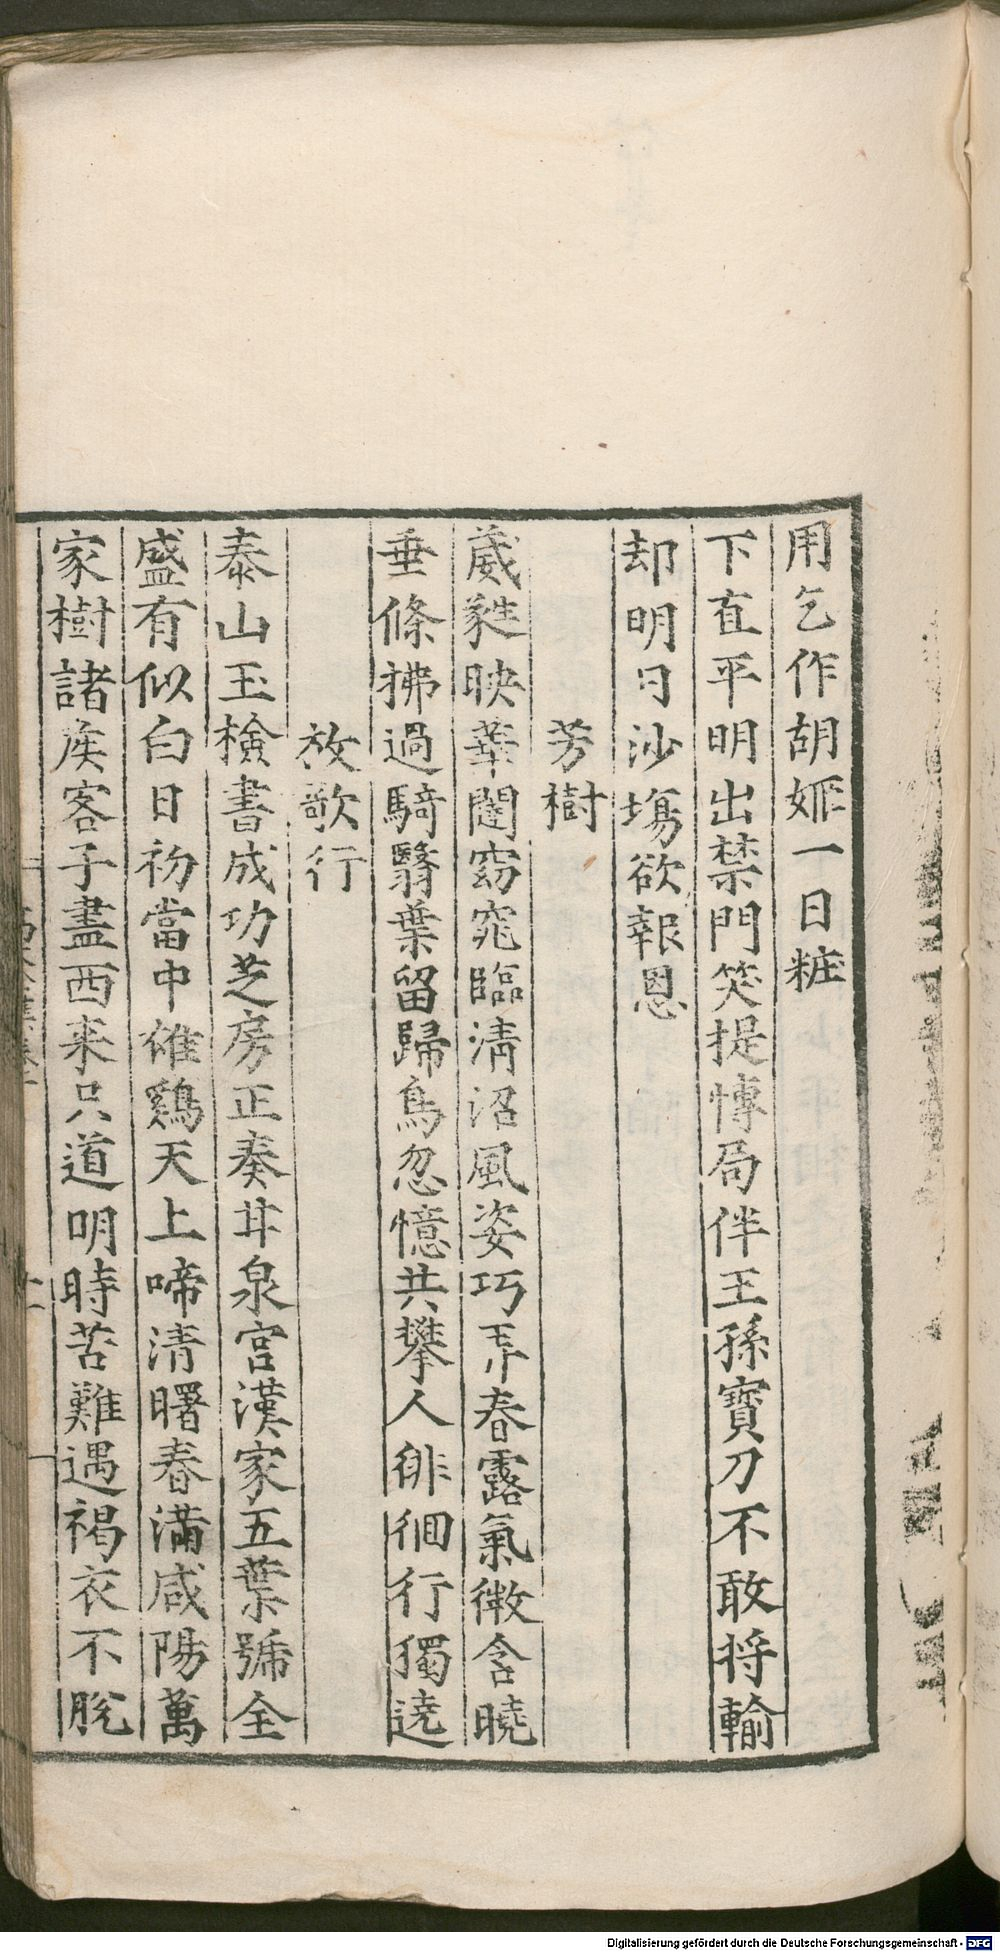 用乞作胡姬一日粧
下直平明出禁門笑提博局伴王孫寶刀不敢将輸
却明日沙塲欲報恩
芳樹
葳蕤映華閣窈窕臨清沼風姿巧弄春露氣微含曉
垂條拂過騎翳葉留歸鳥忽憶共攀人徘徊行獨遶
放歌行
泰山玉檢書成功芝房正奏甘泉宮漢家五葉號全
盛有似白日初當中雄鷄天上啼清曙春滿咸陽萬
家樹諸侯客子盡西来只道明時苦難遇褐衣不脫
Digitalisierung gefördert durch die Deutsche Forschungsgemeinschaft - DFG